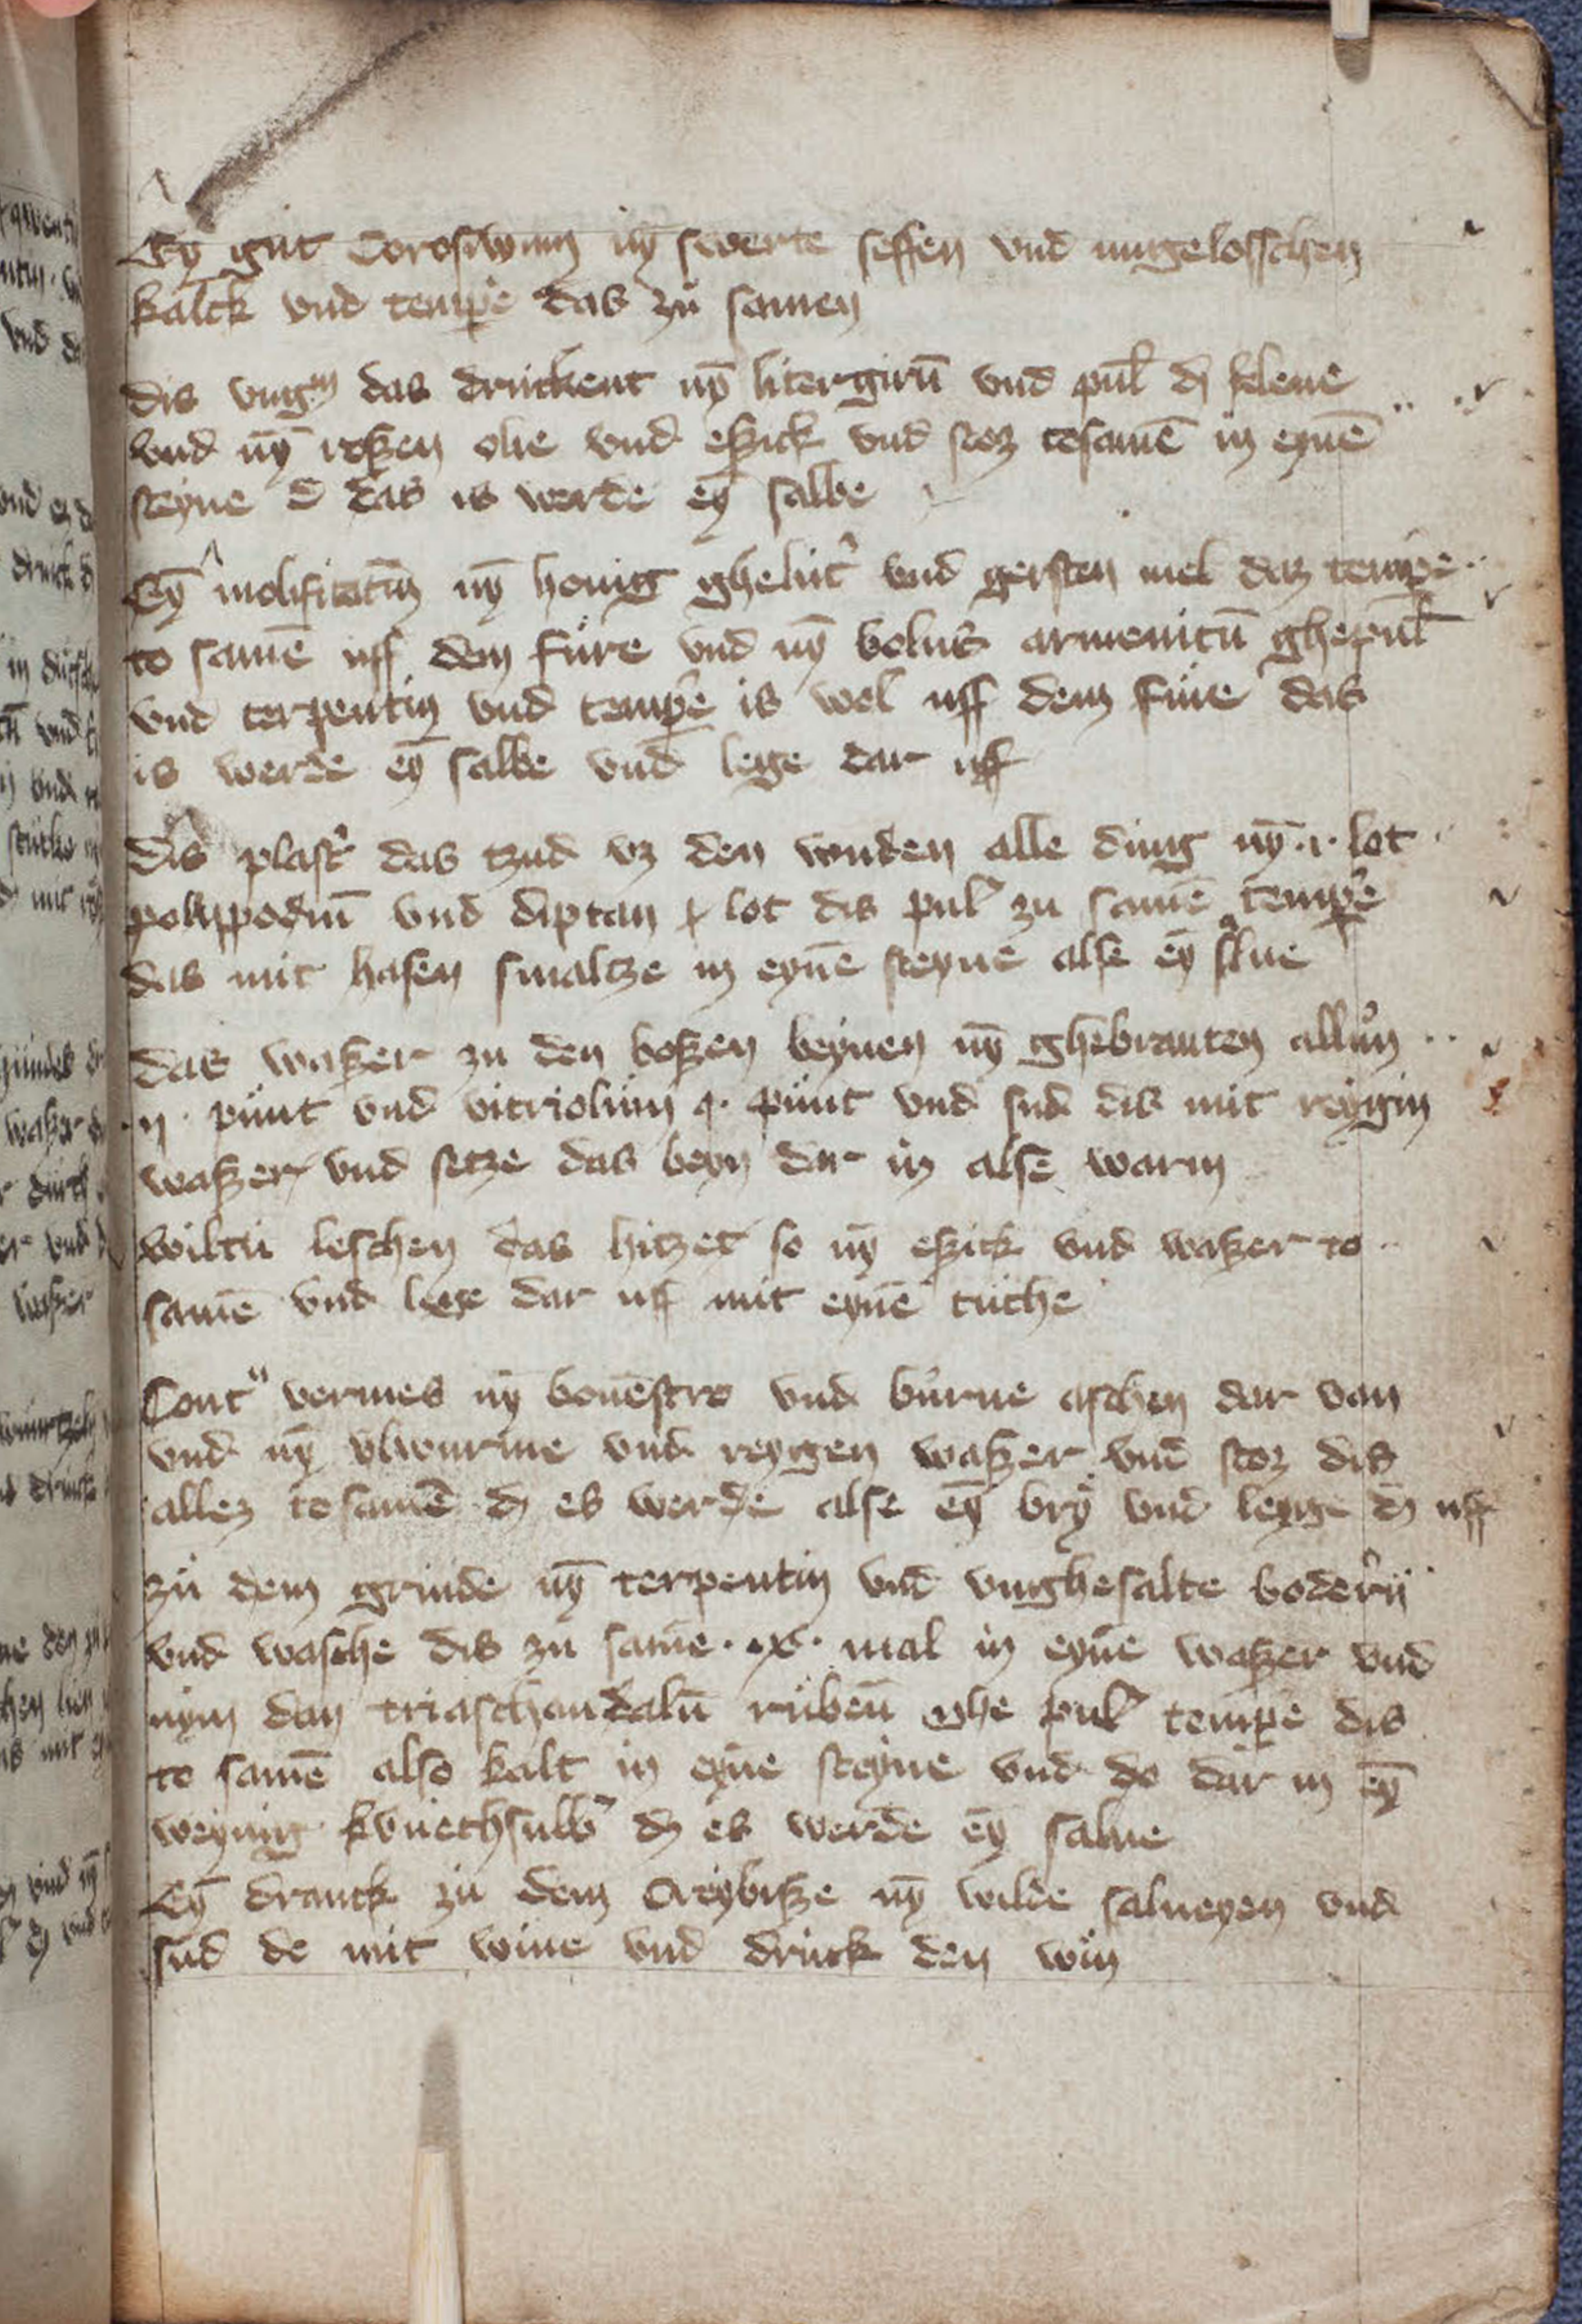 Ey gut Corosiuum nym swerte seffen vnd ungelosschen
kalck vnd tempe das zu samen
dis vngm das druckent nȳ litergirū vnd pul dz klene
vnd nȳ roßen olie vnd eßick vnd stoz tosamē in eynē
steyne d das is werde eȳ salbe
Eȳ molifitatiū nȳ honig ghelut vnd gersten mel daz tempe
to samē uff dem fure vnd nȳ bolus armenicū ghepul
vnd terpentin vnd tempe is wol uff dem fure das
is werde eȳ salbe vnd lege dar uff
dis plast das tzud vz den wnden alle ding nȳ .i. lot
polippodiū vnd diptan lot dis pul zu samē tempe
das mit hasen smaltze in eynē steyne alse eȳ salue
das waßer zu den boßen beynen nȳ ghebranten allun
ij. punt vnd vitriolum punt vnd sud dis mit reygin
waßer vnd setze das beyn dar in alse warm
wiltu leschen das hitzet so nȳ eßick vnd waßer to
samē vnd lege dar uff mit eynē tuche
Cont vermes nȳ bonēstro vnd burne aschen dar van
vnd nȳ vlwurme vnd reygen waßer vnd stoz dis
allez tosamē dz es werde alse eȳ bry vnd leyge dz uff
zu dem grinde nȳ terpentin vnd vnghesalte boderu
vnd wasche dis zu samē .ix. mal in eynē waßer vnd
nym dan triaschandalū rubeū ghe pul tempe dis
to samē also kalt in eynē steyne vnd do dar in eȳ
weynig kuuechsulb dz es werde eȳ salue
Eȳ dranck zu dem Areybisze nȳ wilde salueyen vnd
sud de mit wine vnd drick den win